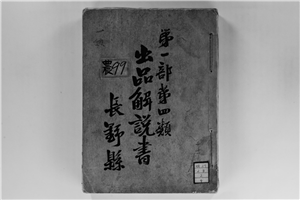 第一部第四類
出品解説書
農99
長野縣